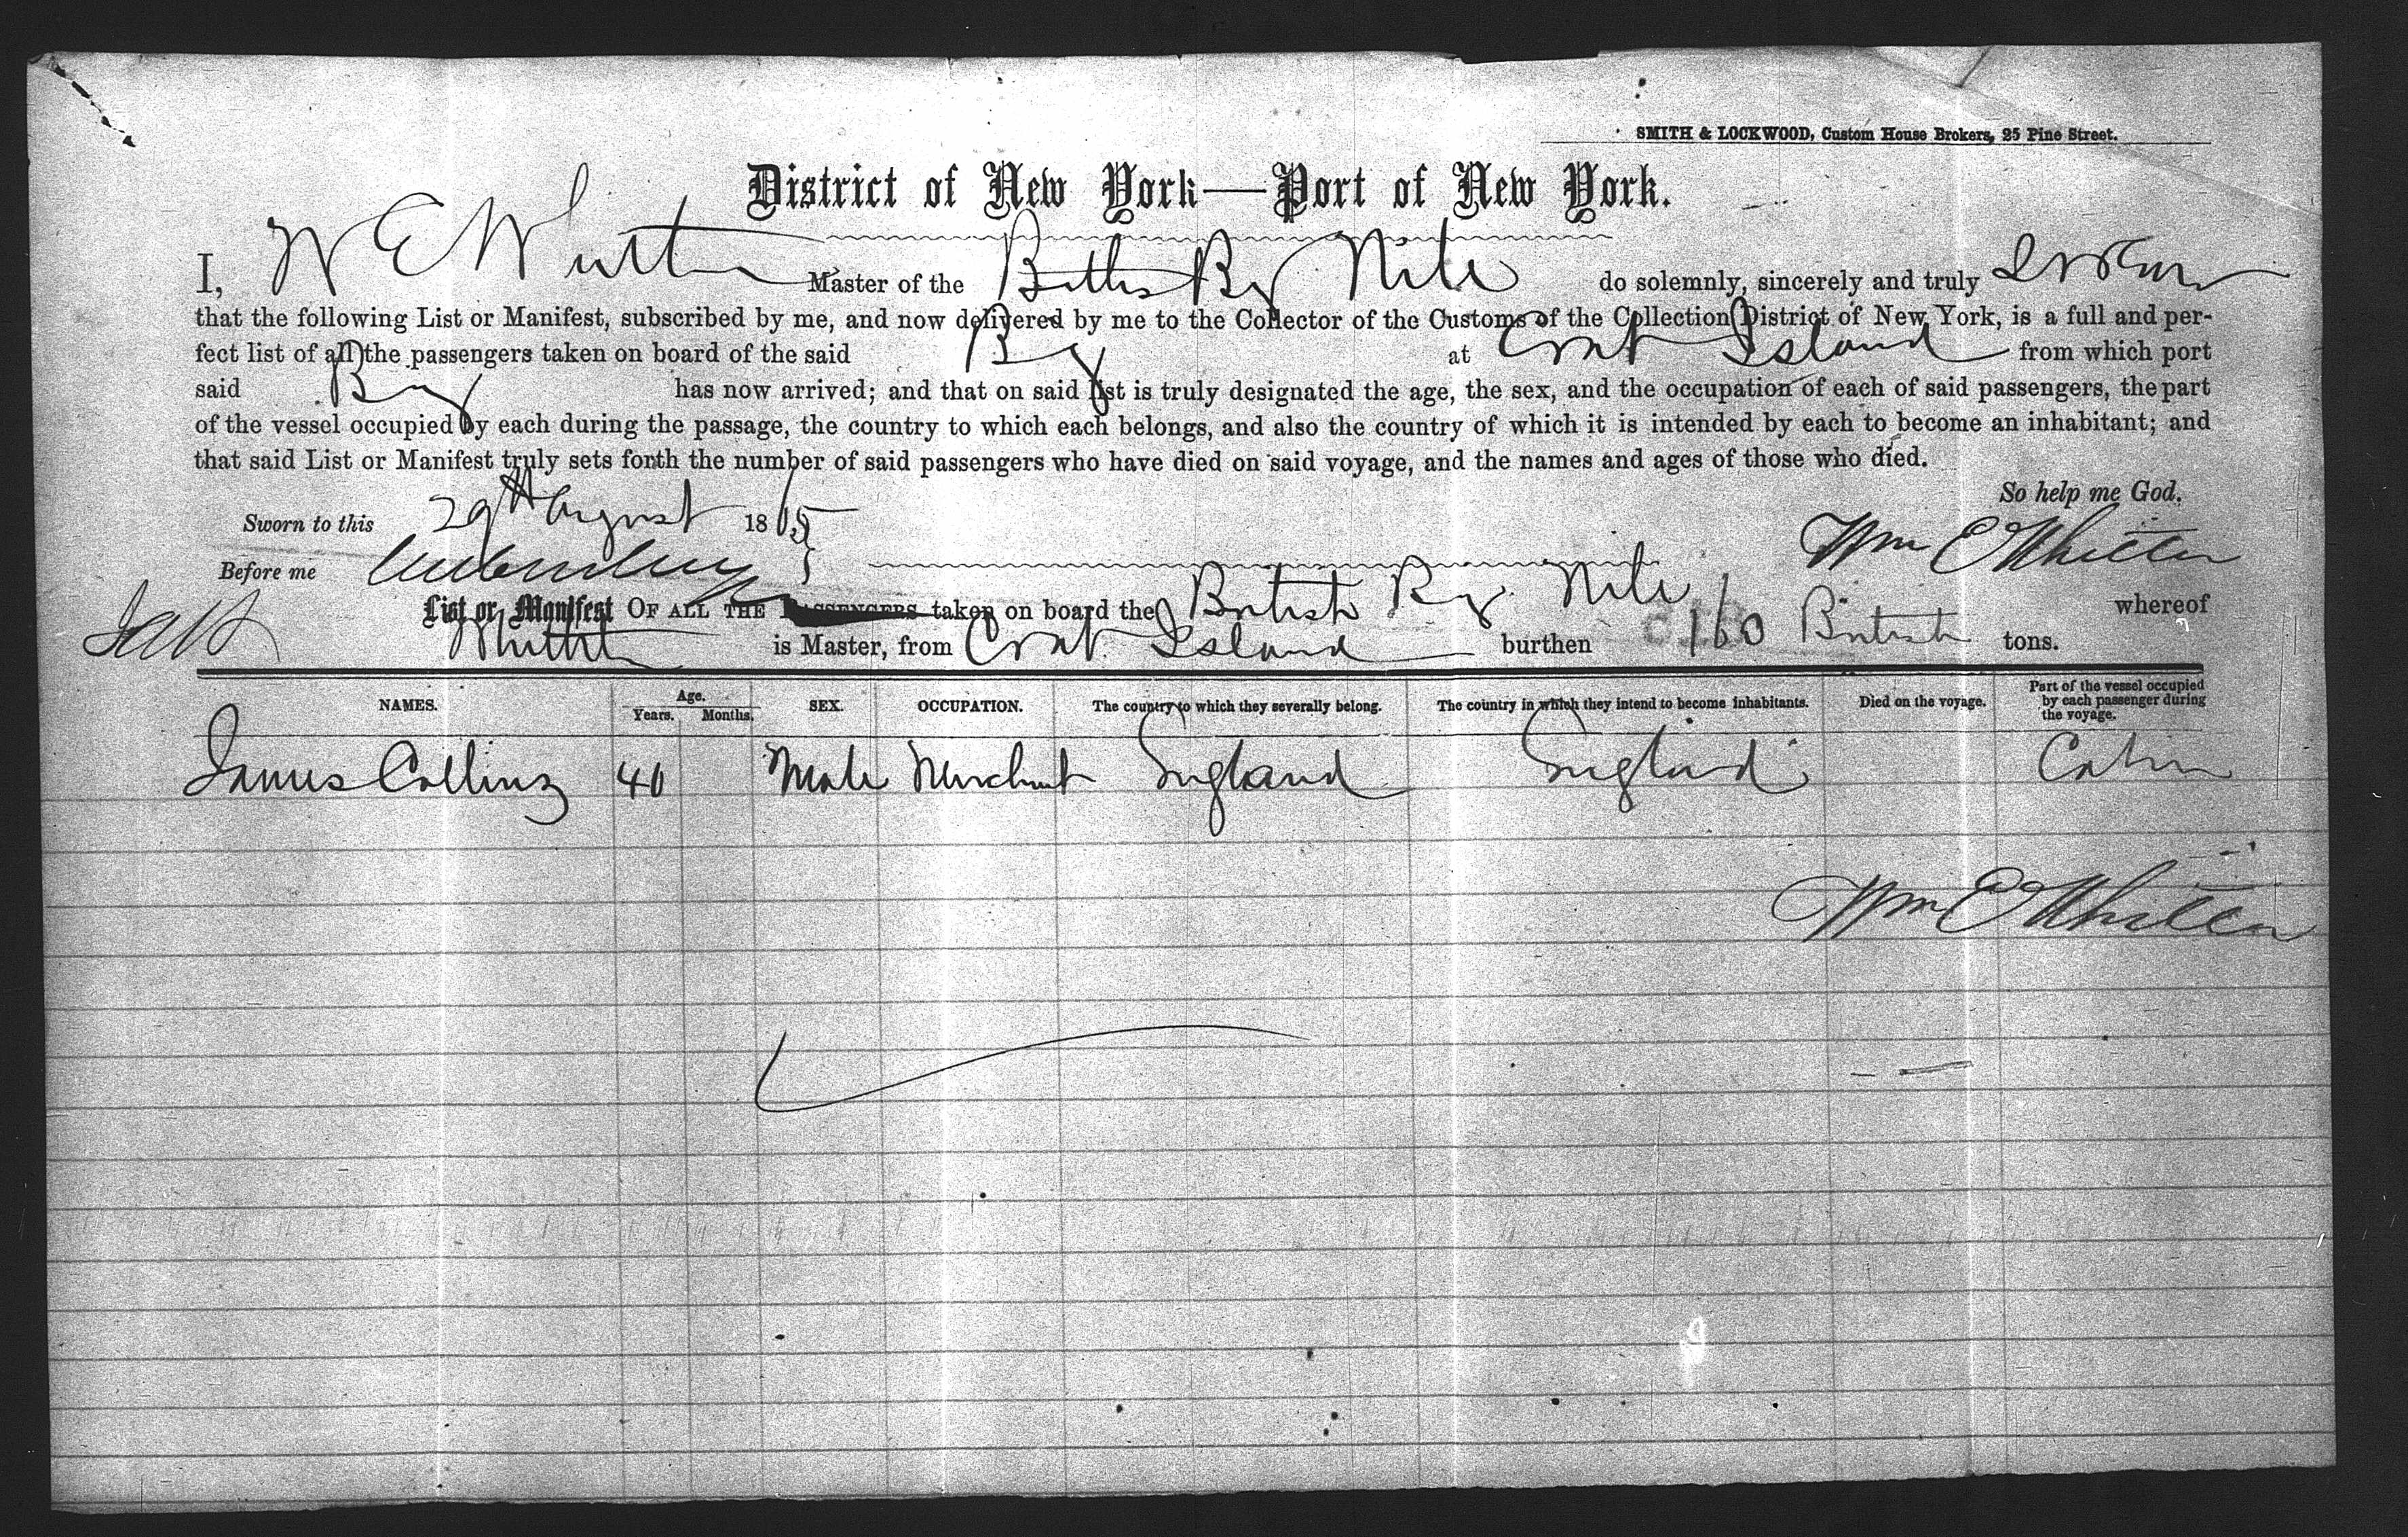 SMITH & LOCKWOOD, Custom House Brokers, 25 Pine Street.
District of New York—Port of New York.
I, W E Whitten Master of the British Brig Nile do solemnly, sincerely and truly Swear
that the following List or Manifest, subscribed by me, and now delivered by me to the Collector of the Customs of the Collection District of New York, is a full and per-
fect list of all the passengers taken on board of the said Brig at Crab Island from which port
said Brig has now arrived; and that on said list is truly designated the age, the sex, and the occupation of each of said passengers, the part
of the vessel occupied by each during the passage, the country to which each belongs, and also the country of which it is intended by each to become an inhabitant; and
that said List or Manifest truly sets forth the number of said passengers who have died on said voyage, and the names and ages of those who died.
So help me God.
Sworn to this 29th August 1865 Wm E Whitten
Before me
List or Manifest OF ALL THE PASSENGERS taken on board the British Brig Nile whereof
Whitten is Master, from Crab Island burthen 160 British tons.
NAMES. Age. Years. Months. SEX. OCCUPATION. The country to which they severally belong. The country in which they intend to become inhabitants. Died on the voyage. Part of the vessel occupied by each passenger during the voyage.
James Collins 40 Male Merchant England England Cabin
Wm E Whitten